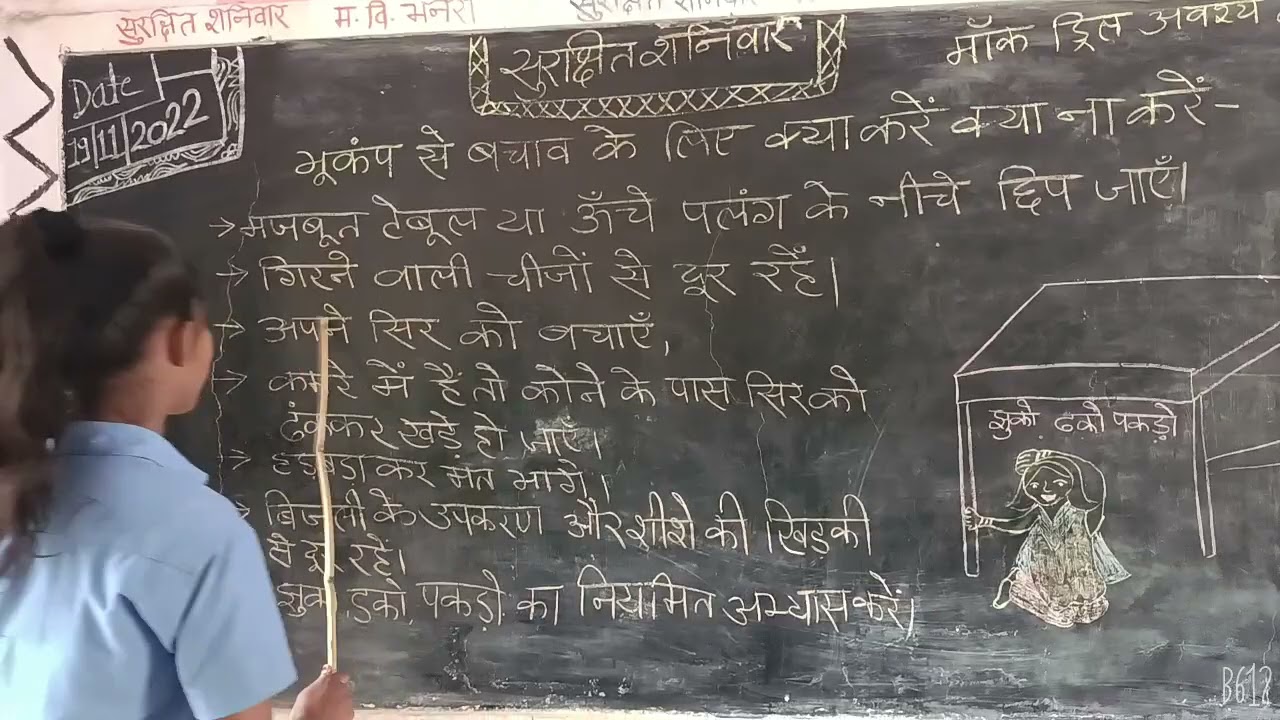 सुरक्षित शनिवार म. वि. भनेरी सुरक्षित शनिवार
Date
19/11/2022
सुरक्षित शनिवार
मॉक ड्रिल अवश्य
भूकंप से बचाव के लिए क्या करें क्या ना करें-
→ मजबूत टेबूल या ऊँचे पलंग के नीचे छिप जाएँ।
→ गिरने वाली चीजों से दूर रहें।
→ अपने सिर को बचाएँ,
→ कमरे में हैं तो कोने के पास सिर को
ढंककर खड़े हो जाएँ।
→ हड़बड़ा कर मत भागे।
बिजली के उपकरण और शीशे की खिड़की
से दूर रहें।
झुको, ढको, पकड़ो का नियमित अभ्यास करें।
झुको, ढको पकड़ो
B612